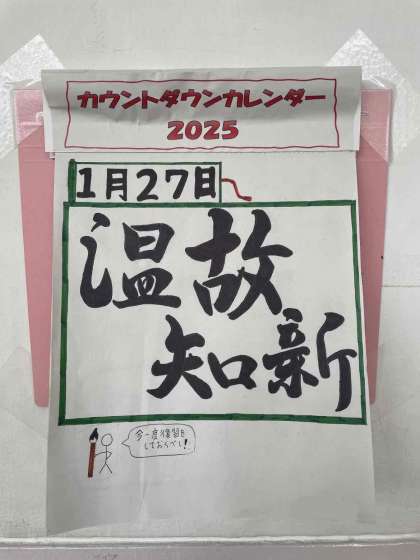 カウントダウンカレンダー
2025
1月27日
温故
知新
今一度復習を
しておくべし!